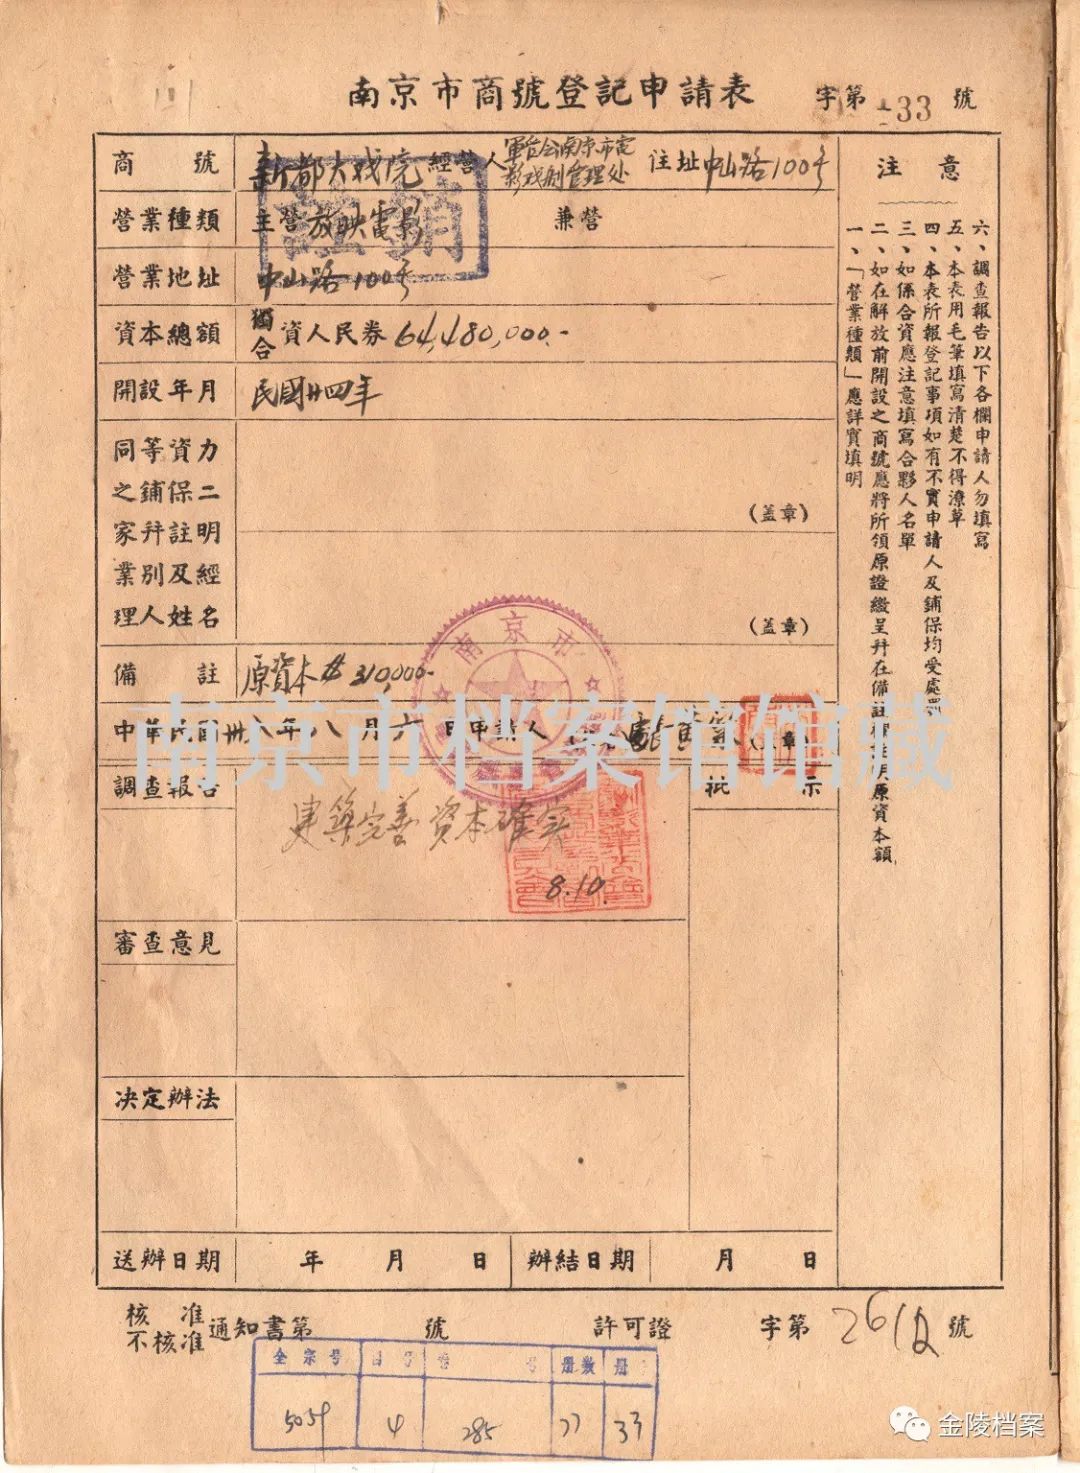 南京市商號登記申請表 字第 133 號
商號 新都大戏院 經營人 軍管会南京市電影戏剧管理处 住址 中山路100号
註銷
營業種類 主营 放映電影 兼營
營業地址 中山路100号
資本總額 獨合資人民券 64,480,000.-
開設年月 民國卅四年
同等資力
之鋪保二
家幷註明
業別及經
理人姓名
(蓋章)
(蓋章)
備註 原資本$310,000-
中華民國卅八年八月六日申請人
(蓋章)
南京市
調查報告 建築完善 資本確实
8.10.
批示
審查意見
決定辦法
送辦日期 年 月 日 辦結日期 月 日
注意
一、「營業種類」應詳實填明
二、如在解放前開設之商號應將所領原證繳呈幷在備註欄註明原資本額
三、如係合資應注意填寫合夥人名單
四、本表所報登記事項如有不實申請人及鋪保均受處罰
五、本表用毛筆填寫清楚不得潦草
六、調查報告以下各欄申請人勿填寫
核准
不核准
通知書第 號 許可證 字第 號
全宗号 目号 卷号 册数 册
5034 4 285 77 33
南京市档案馆馆藏
金陵档案